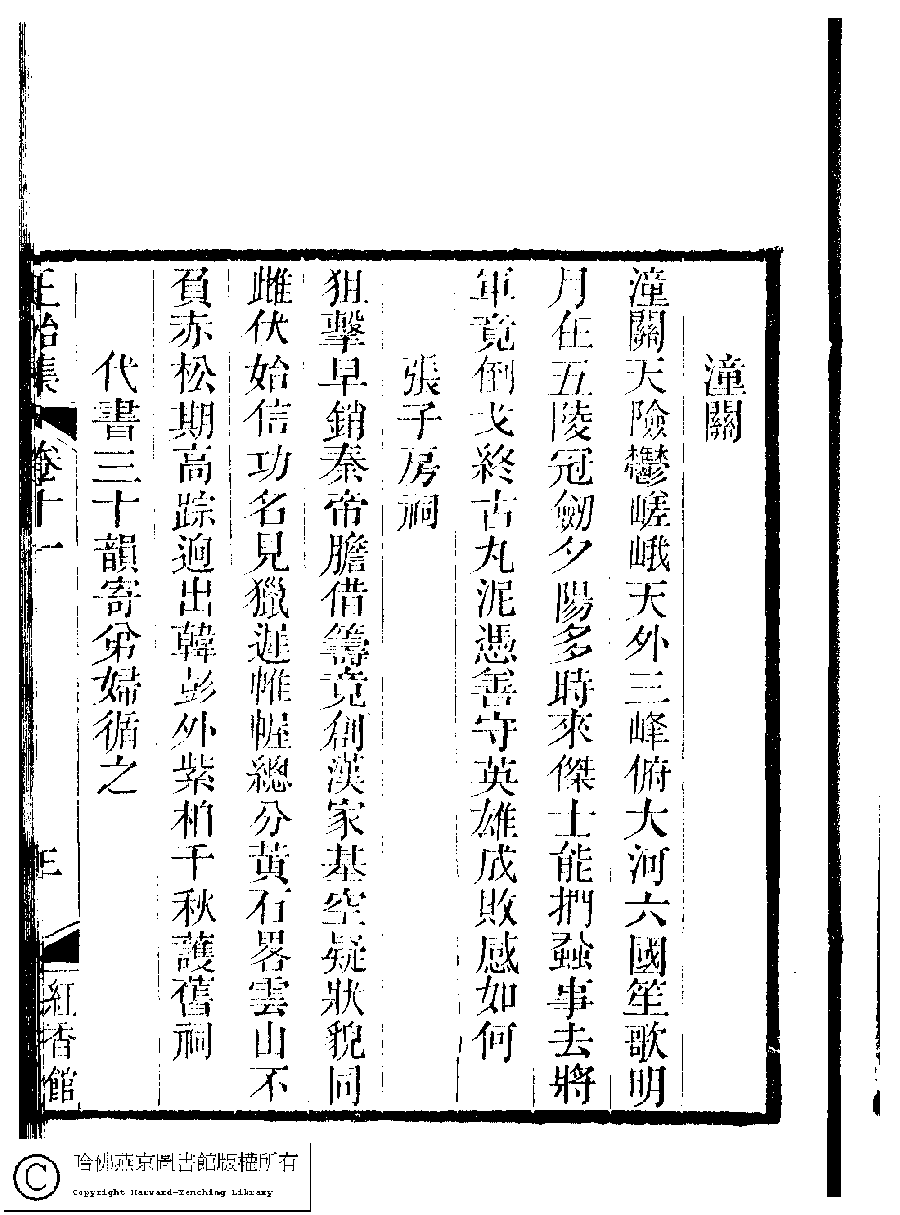 潼關
潼關天險鬱嵯峨天外三峰俯大河六國笙歌明
月在五陵冠劒夕陽多時來傑士能捫蝨事去將
軍竟倒戈終古丸泥憑善守英雄成敗感如何
張子房祠
狙擊早銷秦帝膽借籌竟創漢家基空疑狀貌同
雌伏始信功名見獵遲帷幄總分黃石畧雲山不
負赤松期高踪迥出韓彭外紫柏千秋護舊祠
代書三十韻寄弟婦循之
正始集
卷十一
五
紅香館
哈佛燕京圖書館版權所有
Copyright Harvard-Yenching Library